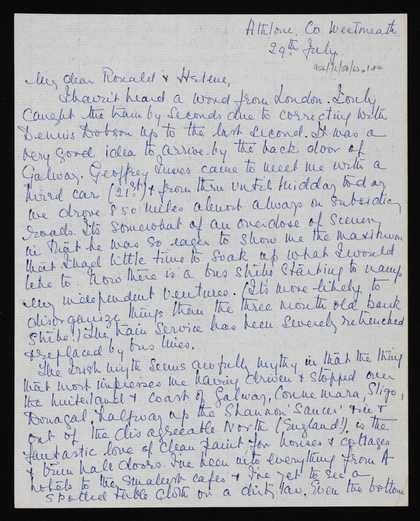 Athlone, Co Westmeath
29th July
My dear Ronald & Helene,
I haven't heard a word from London. I only
caught the train by seconds due to correcting with
Dennis Dobson up to the last second. It was a
very good idea to arrive by the back door of
Galway. Geoffrey came to meet me with a
hired car (21st) & from then until midday today
we drove 850 miles almost always on subsidiary
roads. Its somewhat of an overdose of Scenery
in that he was so eager to show me the maximum
that I had little time to soak up what I would
like to. Now there is a bus strike starting to hamp
my independent ventures. (It's more likely to
disorganize things than the three month old bank
strike.) The train service has been severely retrenched
& replaced by bus lines.
The Irish myth seems awfully mythy in that the thing
that most impresses me having driven & stopped over
the hinterland & coast of Galway, Connemara, Sligo,
Donegal, halfway up the Shannon 'Saucer' & in &
out of the disagreeable North (England!), is the
fantastic love of clean paint, for houses & cottages
& even hall doors. I've been into everything from A
hotels to the smallest cafes & I've yet to see a
spotted table cloth or a dirty lav. Even the bottom